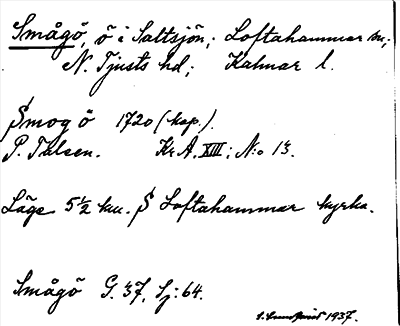 Smågö, ö i Saltsjön; Loftahammar sn;
N. Tjusts hd; Kalmar l.
Smog ö 1720 (kop.).
P. Tilsen. Kr.A. XIII: N:o 13.
Läge 5½ km. S Loftahammar kyrka.
Smågö G. 37, Sj: 64.
1937.